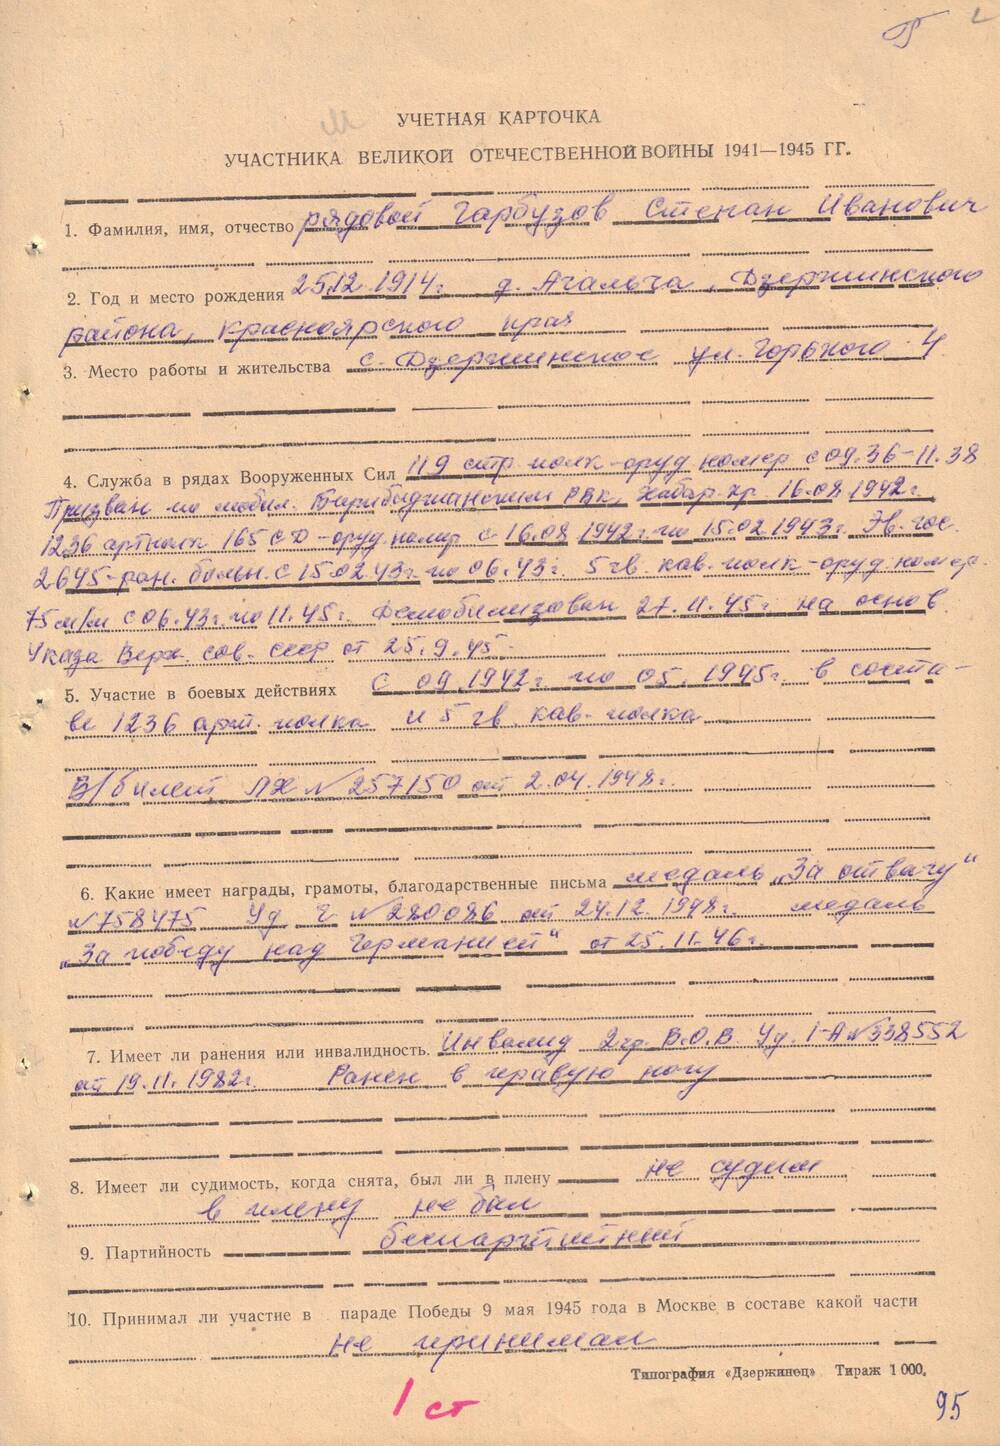 УЧЕТНАЯ КАРТОЧКА
УЧАСТНИКА ВЕЛИКОЙ ОТЕЧЕСТВЕННОЙ ВОЙНЫ 1941—1945 ГГ.
1. Фамилия, имя, отчество рядовой Гарбузов Степан Иванович
2. Год и место рождения 25.12.1914г. д. Агальча, Дзержинского
района, Красноярского края
3. Место работы и жительства с. Дзержинское ул. Горького 4
4. Служба в рядах Вооруженных Сил 119 стр. полк-оруд. номер с 09.36-11.38
Призван по мобил. Бирибиджанским РВК, Хабар. кр. 16.08.1942г.
1236 артполк 165 СД-оруд. номер с 16.08 1942г. по 15.02.1943г. Эв. гос.
2645-ран. больн. с 15.02.43г. по 06.43г. 5 гв. кав. полк-оруд. номер.
75 м/м с 06.43г. по 11.45г. Демобилизован 27.11.45г. на основ.
Указа Верх. сов. ссср от 25.9.45.
5. Участие в боевых действиях с 09.1942г. по 05.1945г. в соста-
ве 1236 арт. полка и 5 гв. кав. полка
В/билет ЛХ № 257150 от 2.04.1948г.
6. Какие имеет награды, грамоты, благодарственные письма медаль „За отвагу“
№758475 Уд. Г №280086 от 24.12.1948г. медаль
„За победу над Германией“ от 25.11.46г.
7. Имеет ли ранения или инвалидность. Инвалид 2гр. В.О.В. Уд. 1-А №338552
от 19.11.1982г. Ранен в правую ногу
8. Имеет ли судимость, когда снята, был ли в плену не судим
в плену не был
9. Партийность беспартийный
10. Принимал ли участие в параде Победы 9 мая 1945 года в Москве в составе какой части
не принимал
Типография «Дзержинец» Тираж 1 000.
1 ст
95